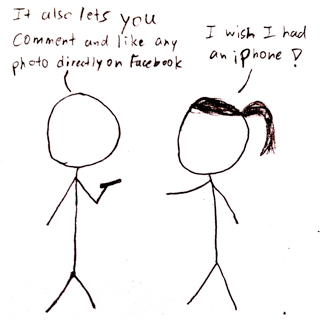 It also lets you
comment and like any
photo directly on Facebook
I wish I had
an iPhone!